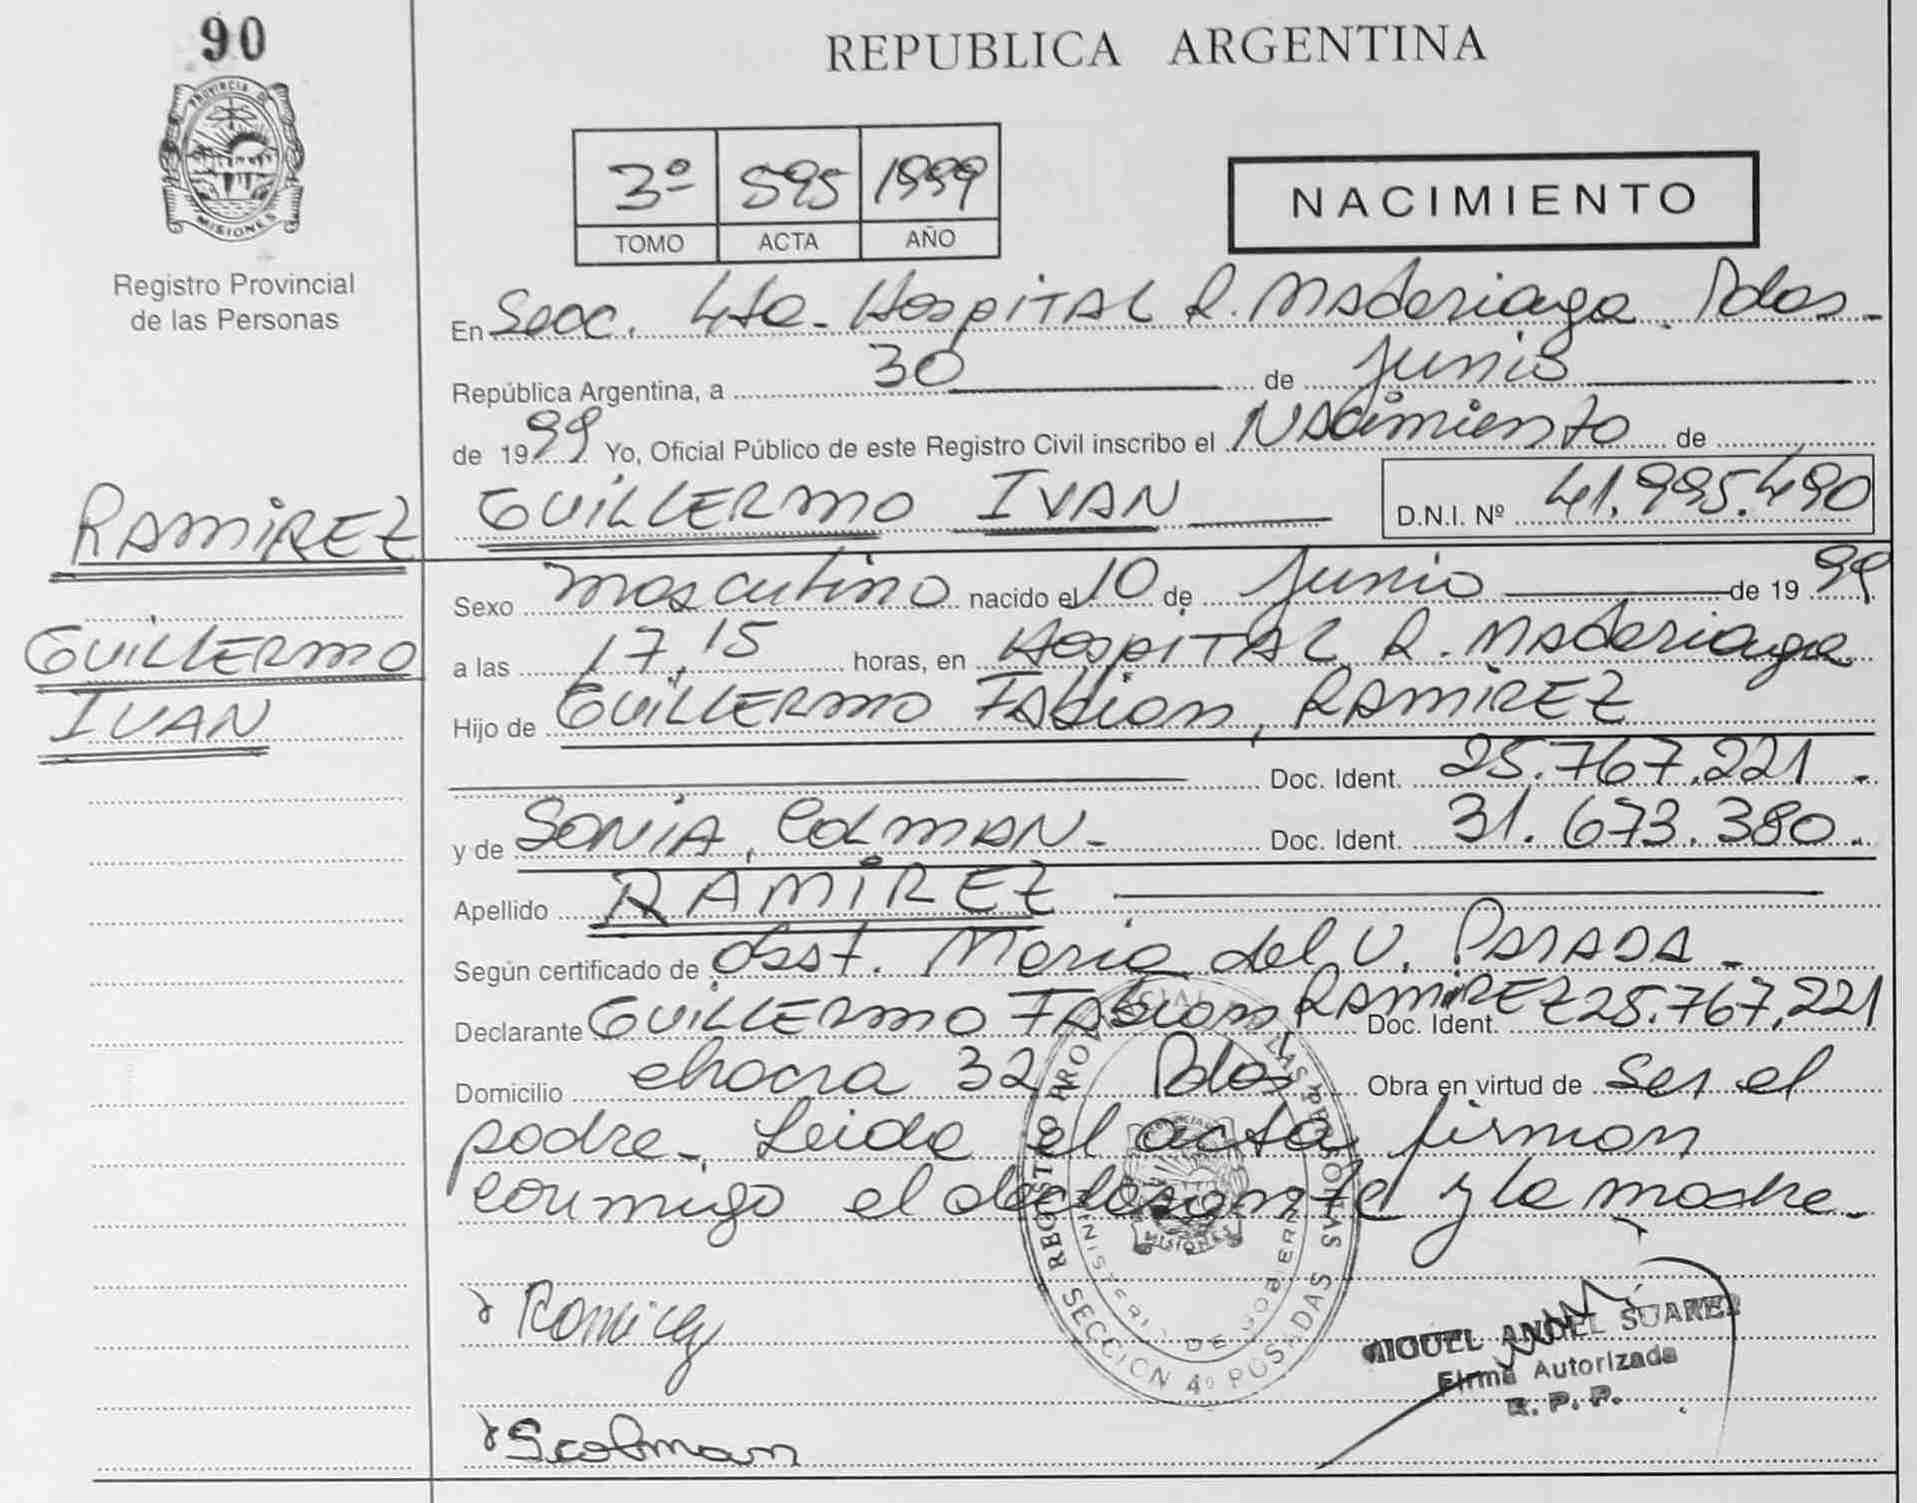 90
REPUBLICA ARGENTINA
PROVINCIA DE
MISIONES
Registro Provincial
de las Personas
3º 595 1999
TOMO ACTA AÑO
NACIMIENTO
En Secc. 4ta. Hospital R. Maderiaga. Pdas.
República Argentina, a 30 de junio
de 1999 Yo, Oficial Público de este Registro Civil inscribo el Nacimiento de
RAMIREZ
GUILLERMO IVAN D.N.I. Nº 41.995.490
GUILLERMO
IVAN
Sexo masculino nacido el 10 de junio de 1999
a las 17,15 horas, en Hospital R. Maderiaga
Hijo de GUILLERMO Fabian, RAMIREZ
Doc. Ident. 25.767.221.
y de SONIA, COLMAN. Doc. Ident. 31.673.380.
Apellido RAMIREZ
Según certificado de Obst. Maria del V. PARADA.
Declarante GUILLERMO Fabian RAMIREZ Doc. Ident. 25.767.221
Domicilio chacra 32 Pdas Obra en virtud de ser el
padre. Leida el acta firman
conmigo el declarante y la madre.
REGISTRO PROVINCIAL DE LAS PERSONAS
MINISTERIO DE GOBIERNO
MISIONES
SECCION 4º POSADAS
Ramirez
MIGUEL ANGEL SUAREZ
Firma Autorizada
R. P. P.
Scolman